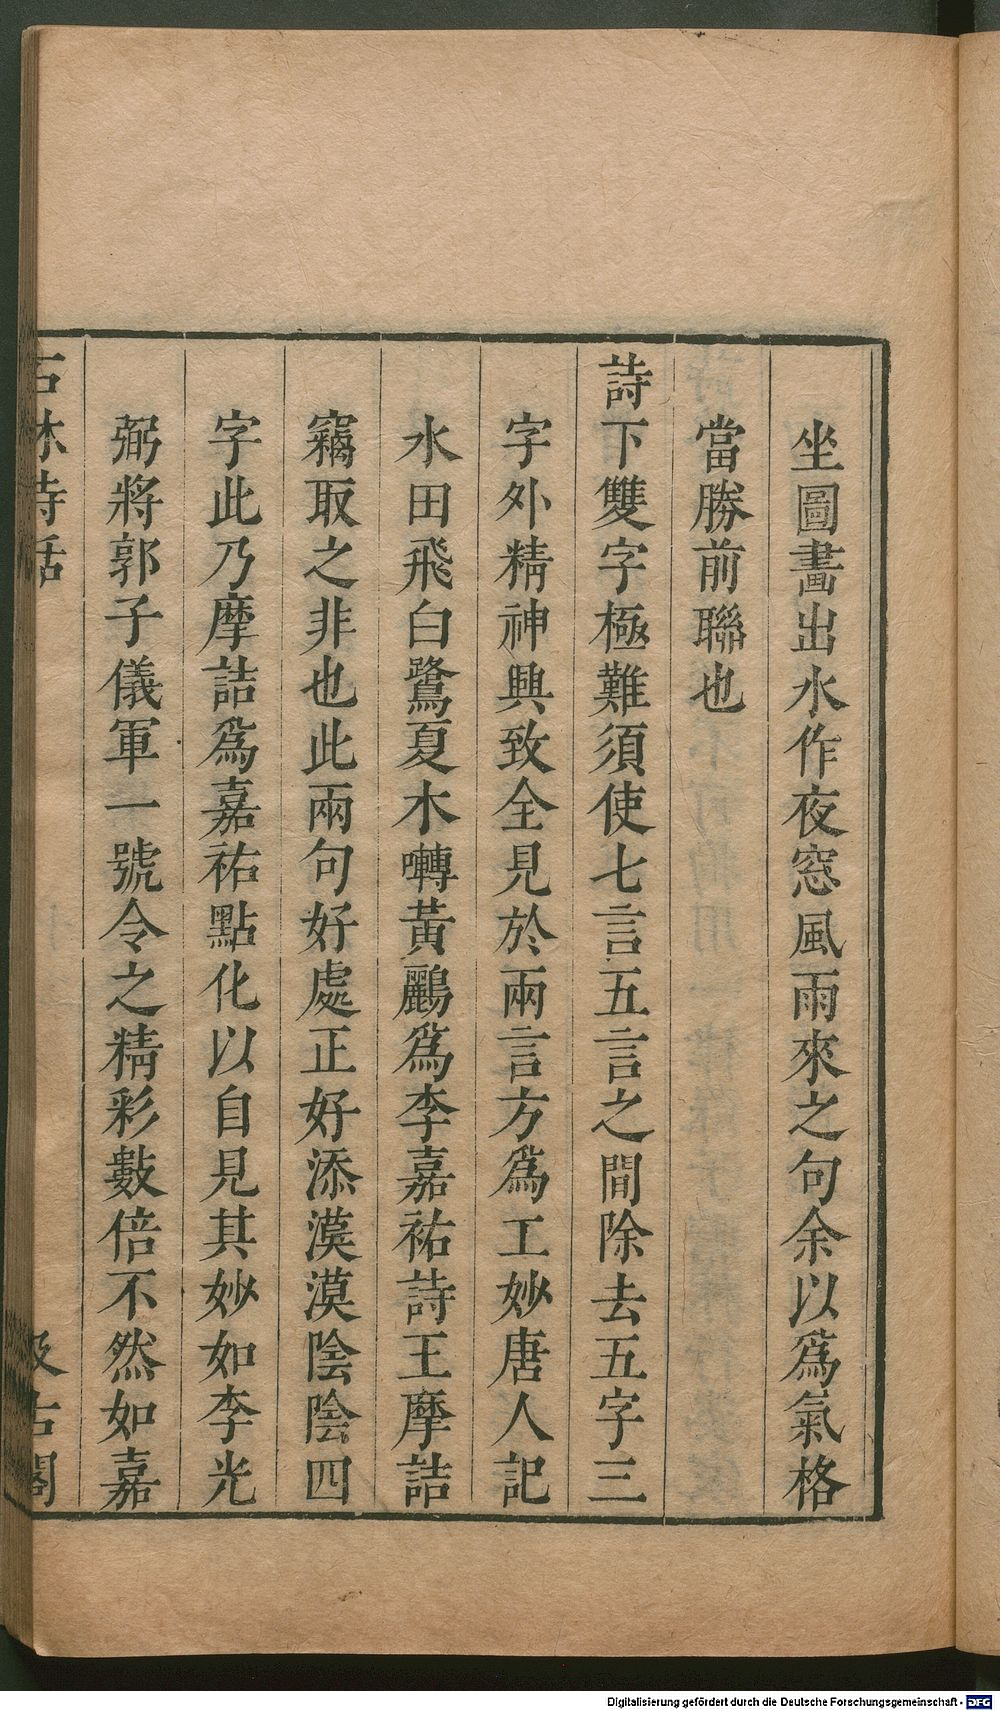 坐圖畫出水作夜窓風雨來之句余以爲氣格
當勝前聯也
詩下雙字極難須使七言五言之間除去五字三
字外精神興致全見於兩言方爲工妙唐人記
水田飛白鷺夏木囀黃鸝爲李嘉祐詩王摩詰
竊取之非也此兩句好處正好添漠漠陰陰四
字此乃摩詰爲嘉祐點化以自見其妙如李光
弼將郭子儀軍一號令之精彩數倍不然如嘉
石林詩話
汲古閣
Digitalisierung gefördert durch die Deutsche Forschungsgemeinschaft - DFG